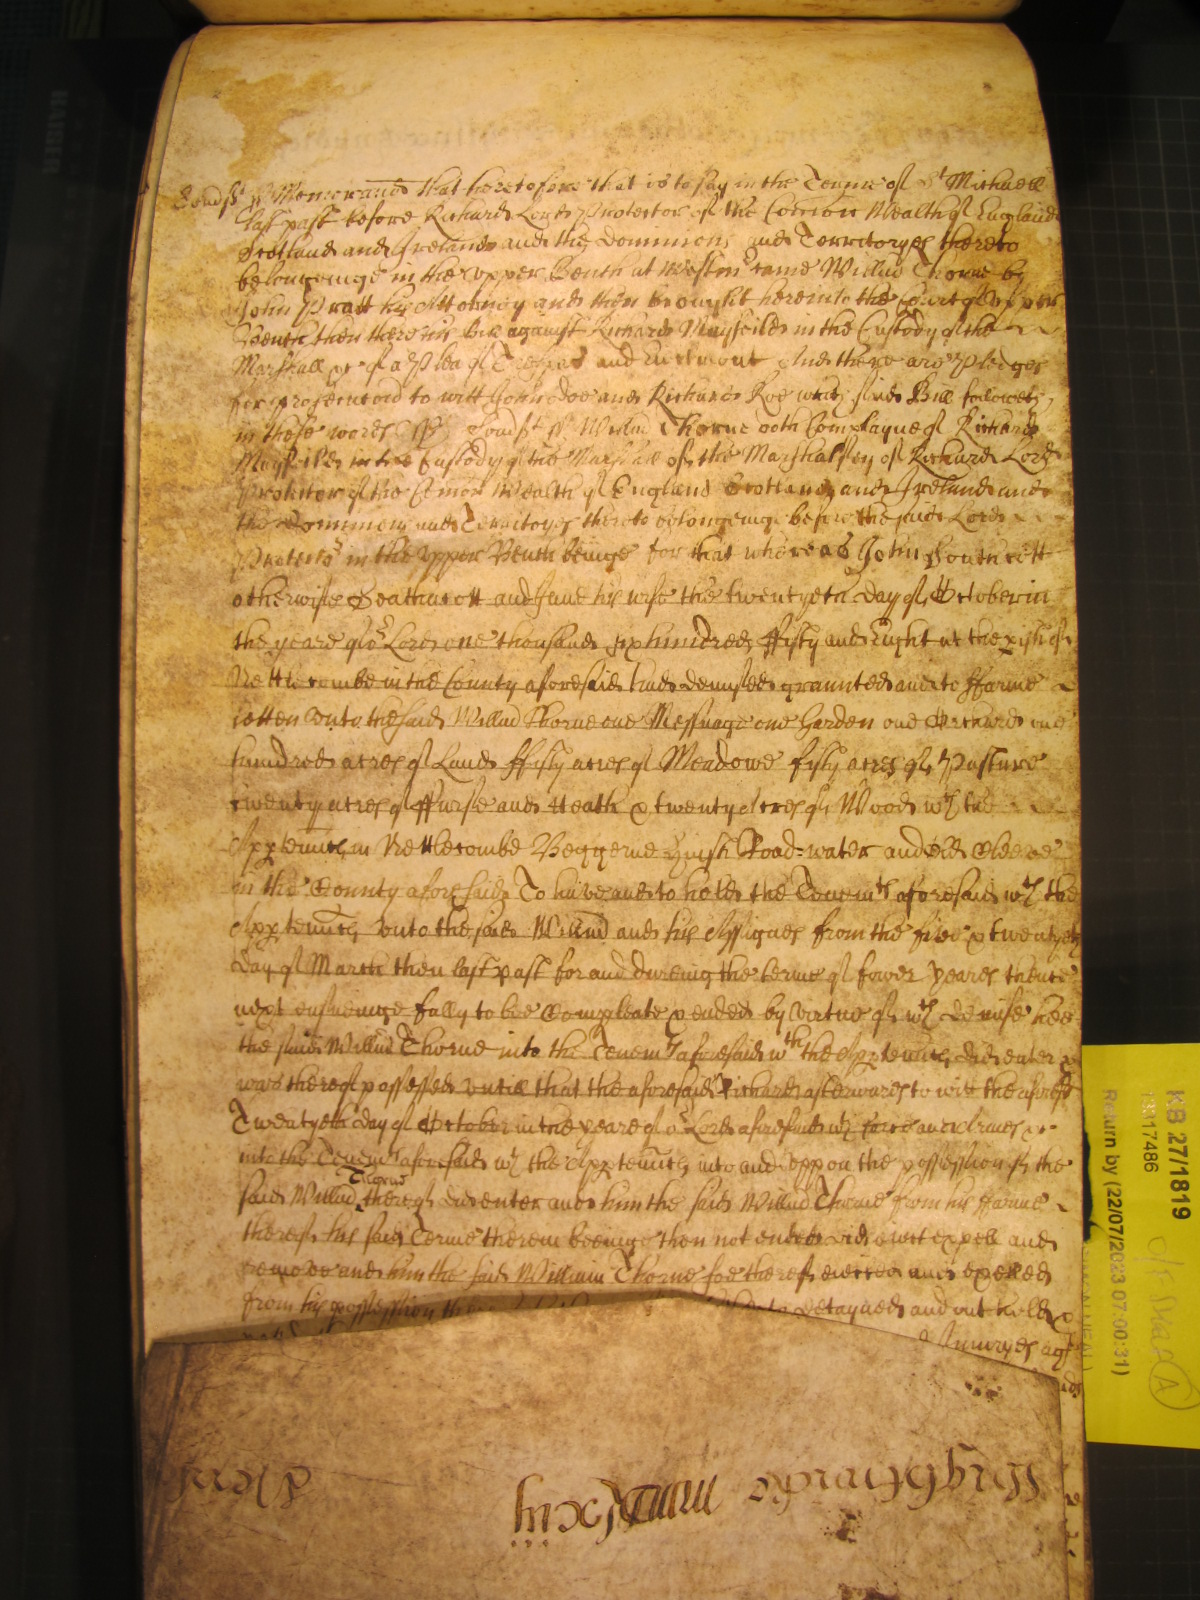 Somst ss Memorand that heretofore that is to say in the Terme of St Michaell
last past before Richard Lord Protector of the Comon Wealth of England
Scotland and Ireland and the Dominions and Territoryes thereto
belongeinge in the upper Bench at Westmr came Willm Thorne by
John Pratt his Attorney and then brought here into the Court of Upper
Bench then there his Bill against Richard Mayfeild in the Custody of the
Marshall &c of a Plea of Trespas and Eiectment And there are Pledges
for prosecucion to witt John Doe and Richard Roe which said Bill followeth
in these words ss Somst ss Willm Thorne doth Complayne of Richard
Mayfeild in the Custody of the Marshall of the Marshalsey of Richard Lord
Protector of the Comon Wealth of England Scotland and Ireland and
the Dominions and Territoryes thereto belongeinge before the said Lord
Protector in the Upper Bench beinge for that whereas John
otherwise and Jane his wife the twentyeth day of October in
the yeare of or Lord one thousand six hundred ffifty and Eight at the pish of
Nettlecombe in the County aforesaid had demised graunted and to ffarme
letten unto the said Willm Thorne one Messuage one Garden one Orchard one
hundred acres of Land ffifty acres of Meadowe fifty acres of Pasture
twenty acres of ffurse and Heath & twenty acres of Wood wth the
Apptennces in Nettlecombe Beggerne Huish Road-water and Old Cleeve
in the County aforesaid To have and to hold the Tenemts aforesaid wth the
Apptennces unto the said Willm and his Assignes from the five & twentyeth
day of March then last past for and dureing the terme of fower yeares thence
next ensueinge fully to be Compleate & ended by virtue of wch demise hee
the said Willm Thorne into the Tenemts aforesaid wth the Apptennces did enter &
was thereof possessed untill that the aforesaid Richard afterwards to wit the aforesd
Twentyeth day of October in the yeare of or Lord aforesaid wth force and Armes &c
into the Tenemts aforesaid wth the Apptennces into and uppon the possession of the
said Willm Thorne thereof did enter and him the said Willm Thorne from his ffarme
thereof his said Terme therein beeinge then not ended did eiect expell and
remove and him the said William Thorne soe thereof eiected and expelled
from his possession detayned and out held &
Iniuryes agt
KB 27/1819
Return by (22/07/2023 07:00:31)
A
KAISER